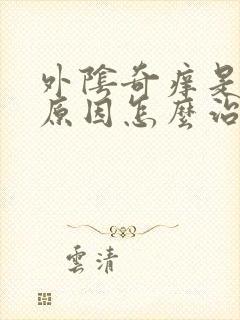 外陰奇痒是
原因怎麼治
雲清